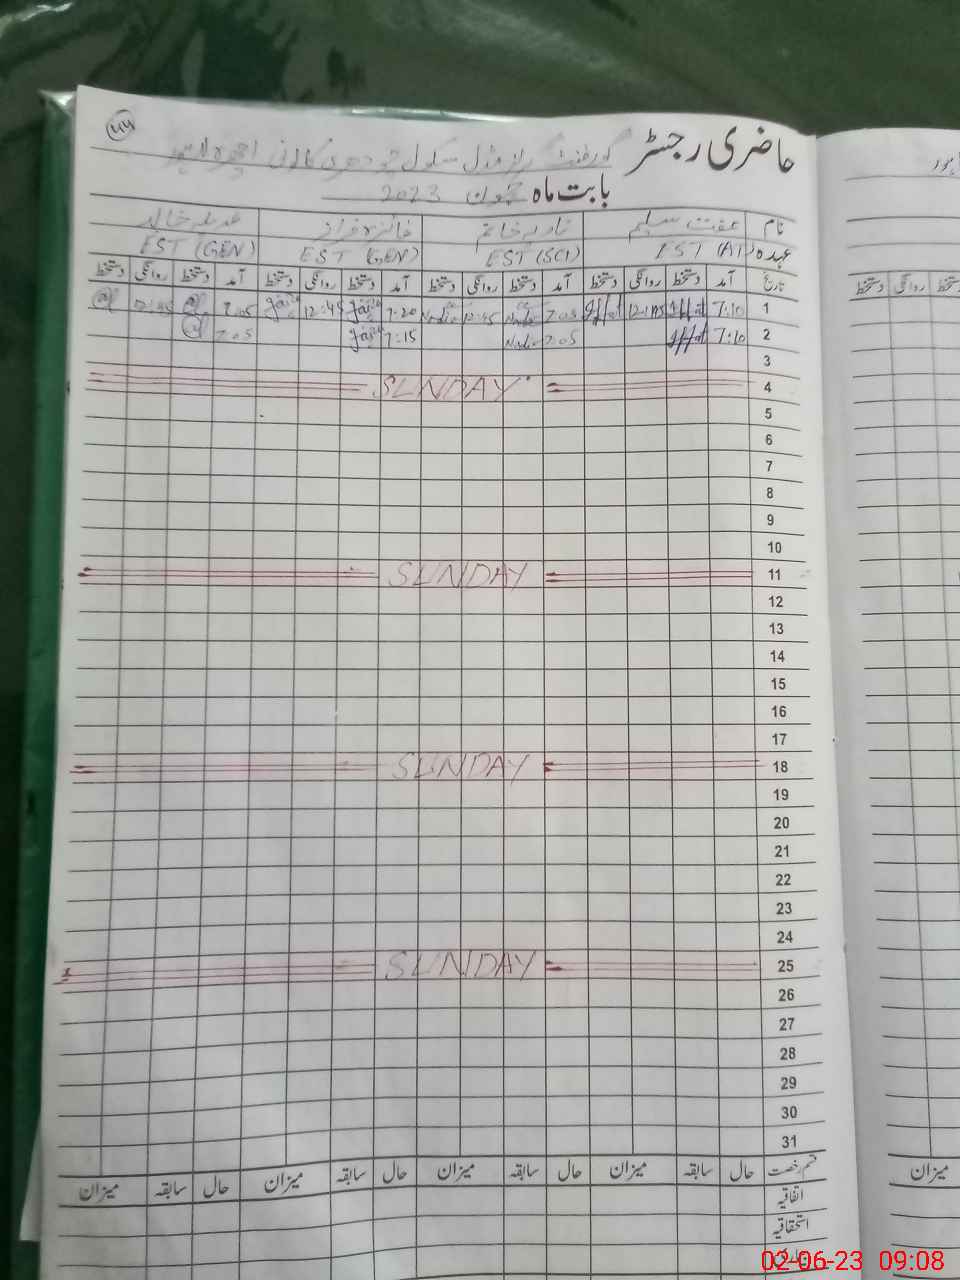 44
حاضری رجسٹر
گورنمنٹ گرلز مڈل سکول چوہدری کالونی اچھرہ لاہور
بابت ماہ جون 2023
نام عفت سلیم نادیہ خانم فائزہ فراز عدیلہ خالد
عہدہ EST (AT) EST (SCI) EST (GEN) EST (GEN)
تاریخ آمد دستخط روانگی دستخط آمد دستخط روانگی دستخط آمد دستخط روانگی دستخط آمد دستخط روانگی دستخط
1 7:10 Iffat Iffat 7:05 Nadia 12:45 Nadia 7:20 12:45 7:05 12:45
2 7:10 Iffat 7:05 Nadia 7:15 7:05
3
4 SUNDAY
5
6
7
8
9
10
11 SUNDAY
12
13
14
15
16
17
18 SUNDAY
19
20
21
22
23
24
25 SUNDAY
26
27
28
29
30
31
قسم رخصت حال سابقہ میزان حال سابقہ میزان حال سابقہ میزان حال سابقہ میزان
اتفاقیہ
استحقاقیہ
02-06-23 09:08
دستخط روانگی
میزان